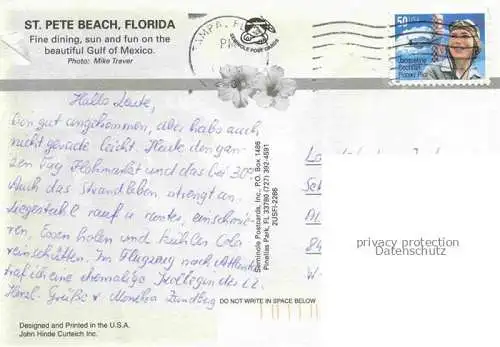 ST. PETE BEACH, FLORIDA
Fine dining, sun and fun on the
beautiful Gulf of Mexico.
Photo: Mike Traver
TAMPA, FL
PM
SEMINOLE POST CARDS
50
USA
Jacqueline
Cochran
Pioneer Pilot
Hallo Leute,
bin gut angekommen, aber habs auch
nicht gerade leicht. Heute den gan-
zen Tag Flohmarkt und das bei 30°
Auch das Strandleben strengt an.
Liegestühl rauf u. runter, einschmie-
ren, Essen holen und kühlen Cola
reinschütten. Im Flugzeug nach Atlanta
traf ich eine ehemalige Kollegin der
Herzl. Grüße v. Monika
Seminole Postcards, Inc., P.O. Box 1486
Pinellas Park, FL 33780 (727) 392-4591
ZUSPI-2286
privacy protection
Datenschutz
DO NOT WRITE IN SPACE BELOW
Designed and Printed in the U.S.A.
John Hinde Curteich Inc.